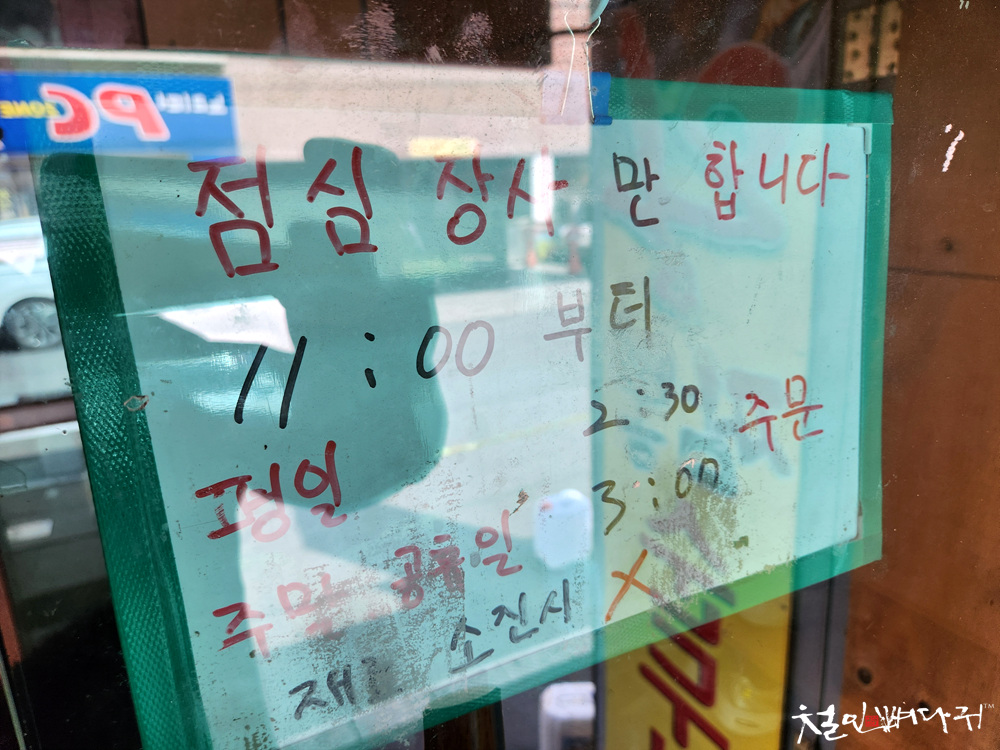 점심 장사 만 합니다
11:00 부터
평일 2:30 주문
주말, 공휴일 3:00
재료 소진시 X
PC
ZONE
철인뼈다귀™